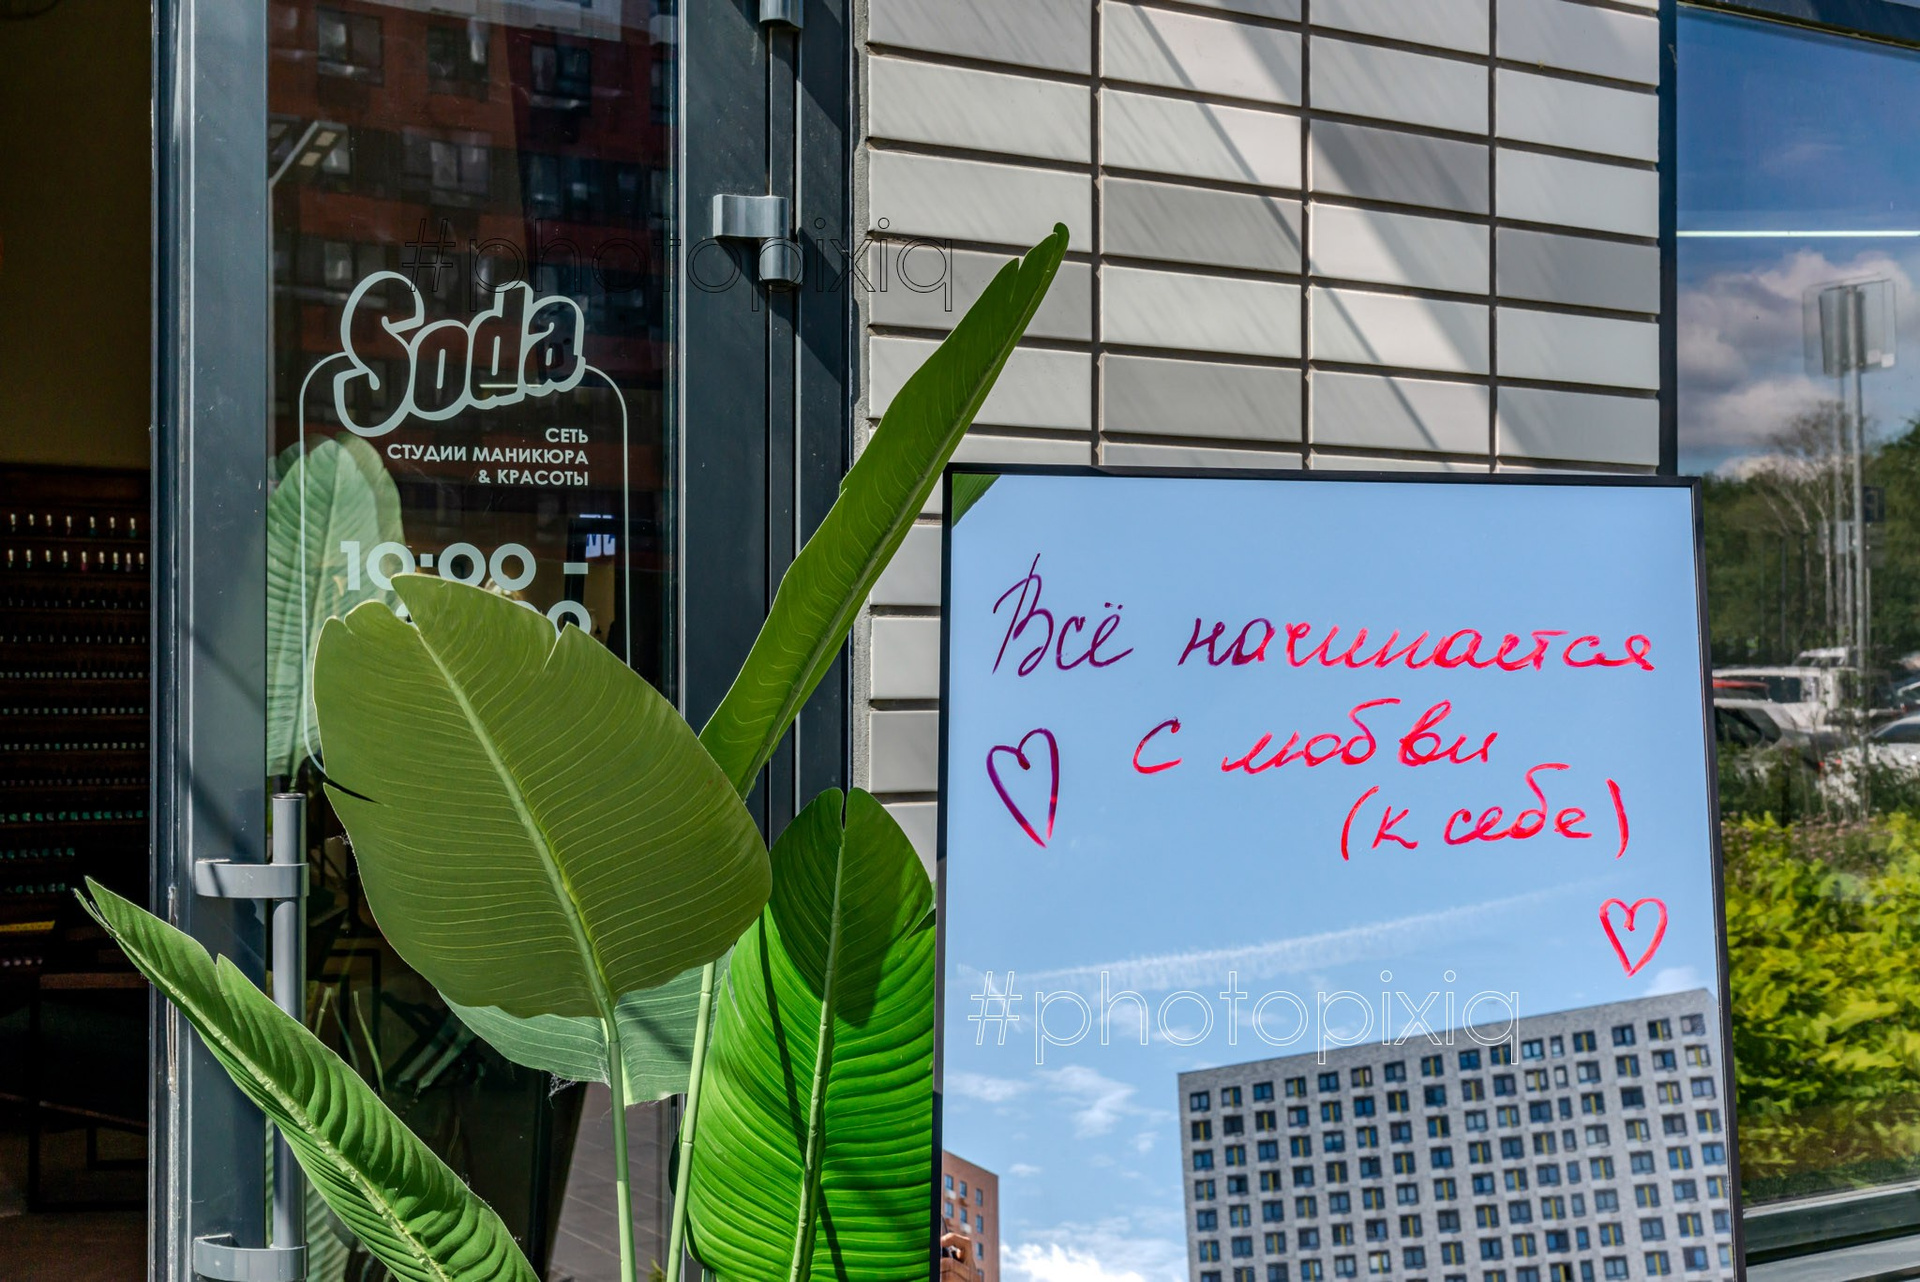 #photopixiq
Soda
СЕТЬ
СТУДИИ МАНИКЮРА
& КРАСОТЫ
10:00 -
Всё начинается
с любви
(к себе)
#photopixiq